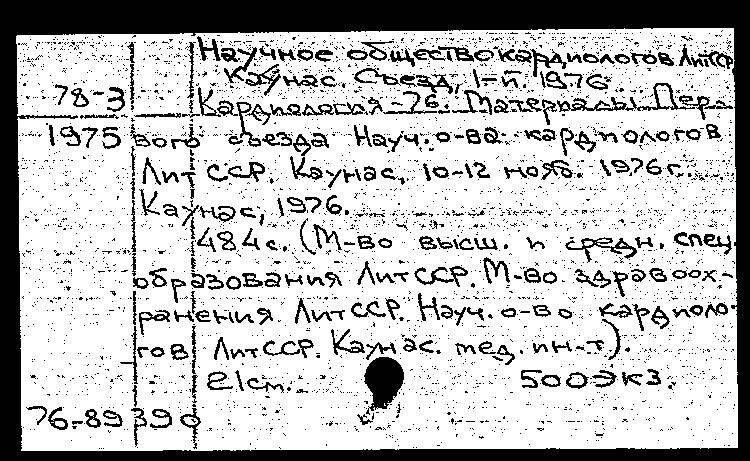 Научное общество кардиологов ЛитССР
Каунас. Съезд, 1-й. 1976
78-3
Кардиология-76. Материалы Пер-
1975
вого съезда Науч. о-ва кардиологов
ЛитССР. Каунас, 10-12 нояб. 1976 г.
Каунас, 1976.
484 с. (М-во высш. и средн. спец.
образования ЛитССР. М-во здравоох-
ранения ЛитССР. Науч. о-во кардиоло-
гов ЛитССР. Каунас. мед. ин-т).
21 см. 500 экз.
76-89390